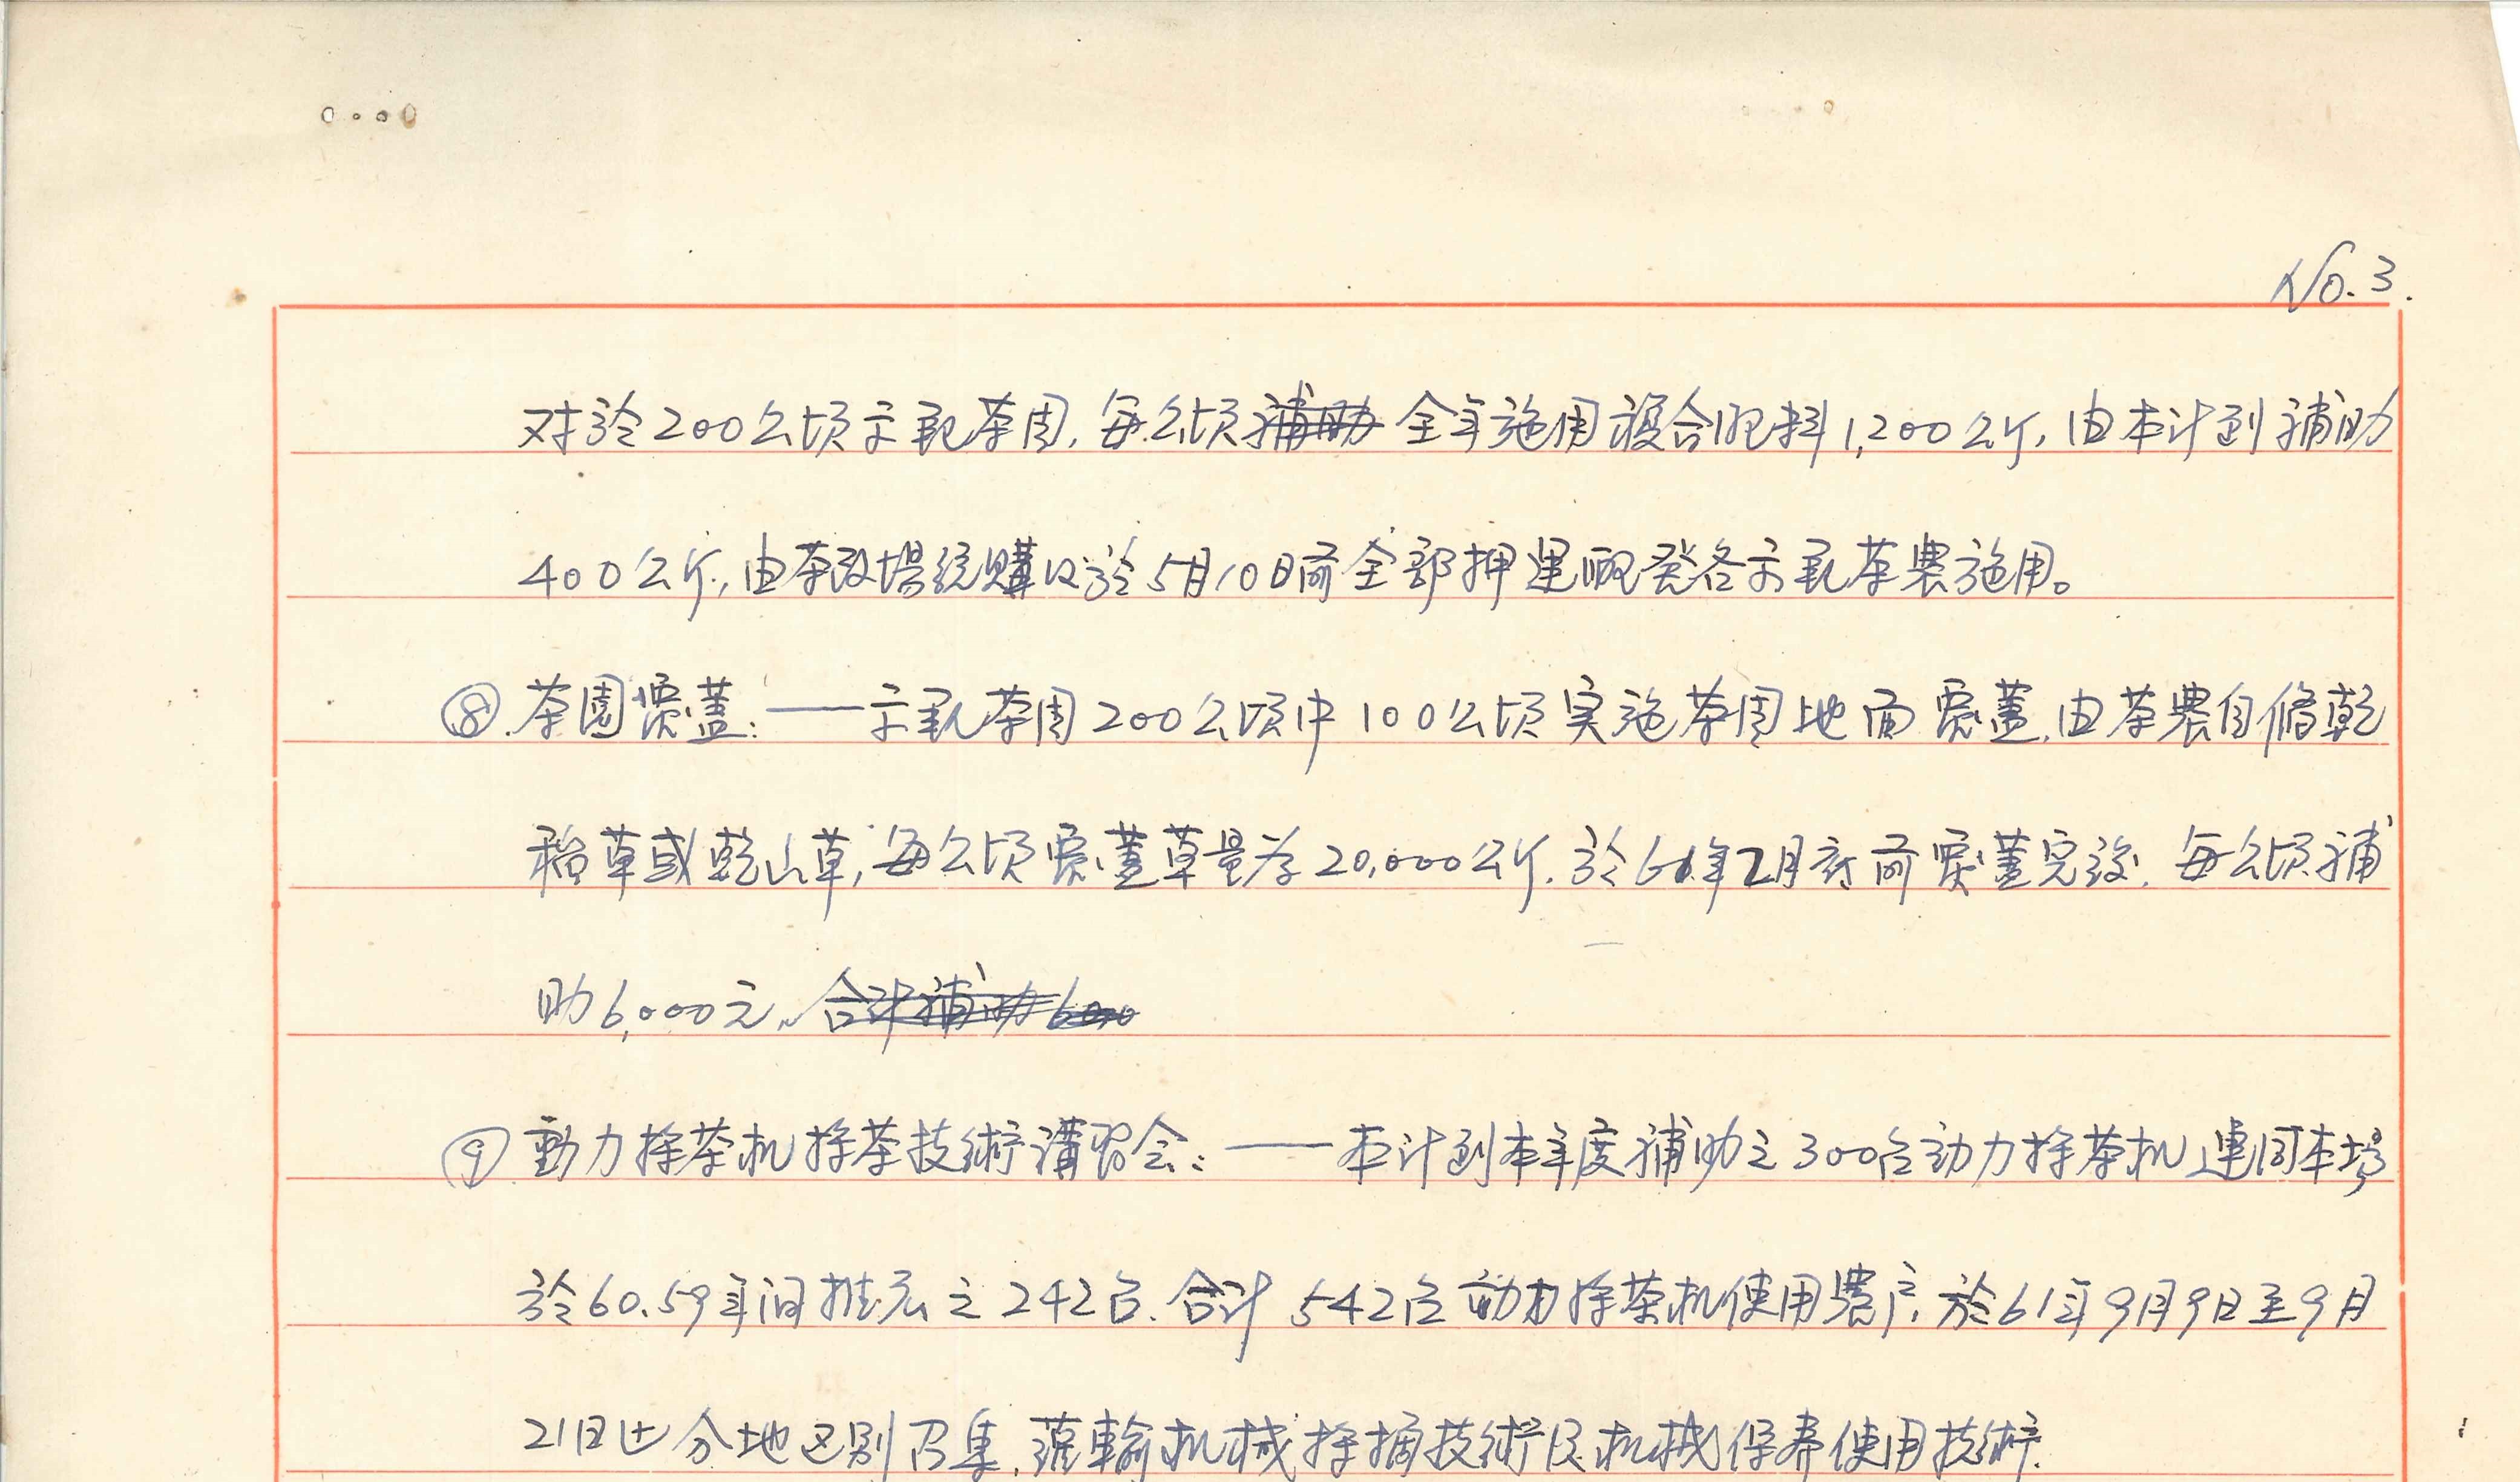 No.3.
对於200公頃示範茶园,每公頃補助全年施用複合肥料1,200公斤,由本計划補助
400公斤,由茶改場統購以於5月10日前全部押運配発各示範茶農施用。
⑧.茶園覆蓋:——示範茶园200公頃中100公頃实施茶园地面覆蓋,由茶農自備乾
稻草或乾山草,每公頃覆蓋草量为20,000公斤.於61年2月底前覆蓋完後,每公頃補
助6,000元、合计補助6000
⑨動力採茶机採茶技術講習会:——本计划本年度補助之300台动力採茶机連同本場
於60.59年间推広之242台.合计542台动力採茶机使用農户,於61年9月9日至9月
21日止分地区別召集.灌輸机械採摘技術及机械保养使用技術.